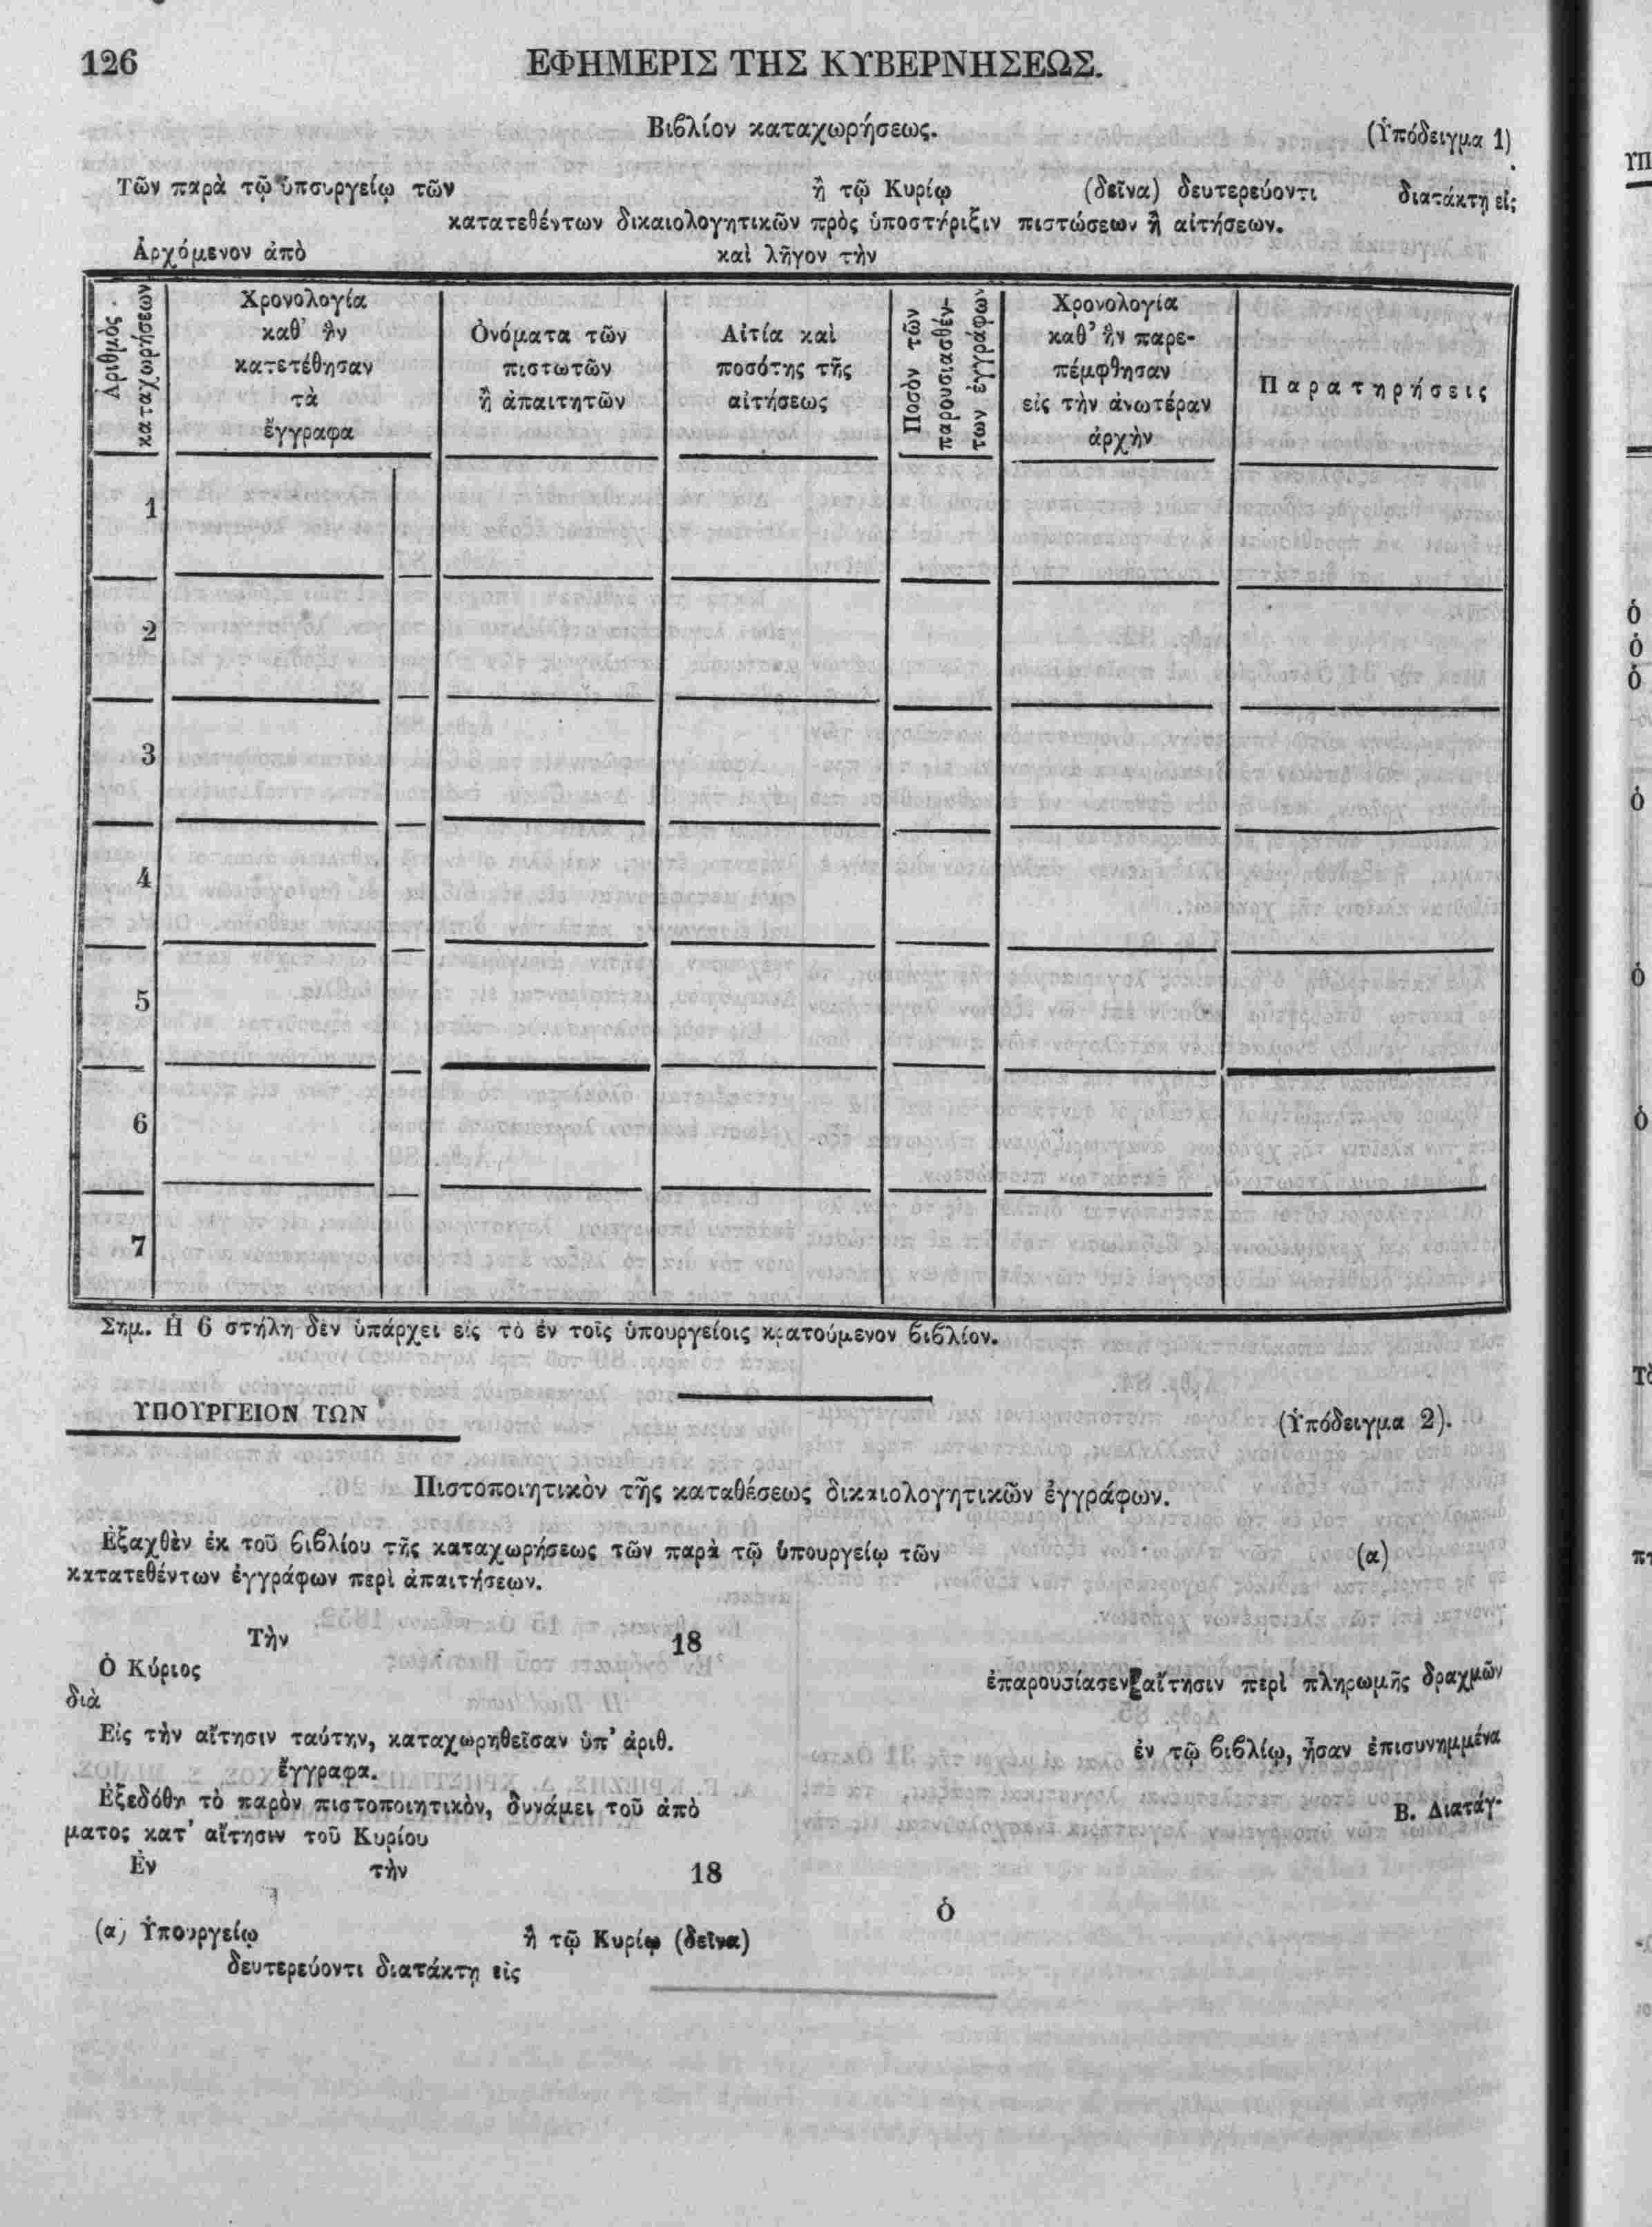 126
ΕΦΗΜΕΡΙΣ ΤΗΣ ΚΥΒΕΡΝΗΣΕΩΣ.
Βιβλίον καταχωρήσεως.
(Ὑπόδειγμα 1)
Τῶν παρὰ τῷ ὑπουργείῳ τῶν ἢ τῷ Κυρίῳ (δεῖνα) δευτερεύοντι διατάκτῃ εἰς
κατατεθέντων δικαιολογητικῶν πρὸς ὑποστήριξιν πιστώσεων ἢ αἰτήσεων.
Ἀρχόμενον ἀπὸ καὶ λῆγον τὴν
Ἀριθμὸς
καταχωρήσεων
Χρονολογία
καθ’ ἣν
κατετέθησαν
τὰ
ἔγγραφα
Ὀνόματα τῶν
πιστωτῶν
ἢ ἀπαιτητῶν
Αἰτία καὶ
ποσότης τῆς
αἰτήσεως
Ποσὸν τῶν
παρουσιασθέν-
των ἐγγράφων
Χρονολογία
καθ’ ἣν παρε-
πέμφθησαν
εἰς τὴν ἀνωτέραν
ἀρχὴν
Παρατηρήσεις
1
2
3
4
5
6
7
Σημ. Ἡ 6 στήλη δὲν ὑπάρχει εἰς τὸ ἐν τοῖς ὑπουργείοις κρατούμενον βιβλίον.
ΥΠΟΥΡΓΕΙΟΝ ΤΩΝ
(Ὑπόδειγμα 2).
Πιστοποιητικὸν τῆς καταθέσεως δικαιολογητικῶν ἐγγράφων.
Ἐξαχθὲν ἐκ τοῦ βιβλίου τῆς καταχωρήσεως τῶν παρὰ τῷ ὑπουργείῳ τῶν (α)
κατατεθέντων ἐγγράφων περὶ ἀπαιτήσεων.
Τὴν 18
Ὁ Κύριος ἐπαρουσίασεν αἴτησιν περὶ πληρωμῆς δραχμῶν
διὰ
Εἰς τὴν αἴτησιν ταύτην, καταχωρηθεῖσαν ὑπ’ ἀριθ. ἐν τῷ βιβλίῳ, ἦσαν ἐπισυνημμένα
ἔγγραφα.
Ἐξεδόθη τὸ παρὸν πιστοποιητικὸν, δυνάμει τοῦ ἀπὸ Β. Διατάγ-
ματος κατ’ αἴτησιν τοῦ Κυρίου
Ἐν τὴν 18
Ὁ
(α) Ὑπουργείῳ ἢ τῷ Κυρίῳ (δεῖνα)
δευτερεύοντι διατάκτῃ εἰς